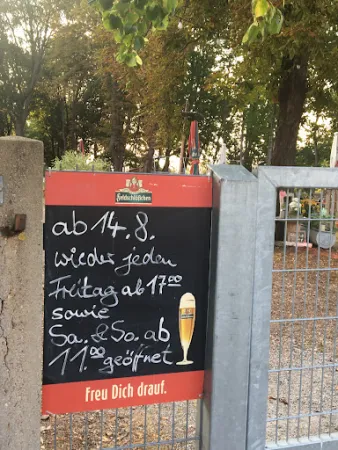 Feldschlößchen
ab 14.8.
wieder jeden
Freitag ab 17⁰⁰
sowie
Sa. & So. ab
11.⁰⁰ geöffnet
Freu Dich drauf.